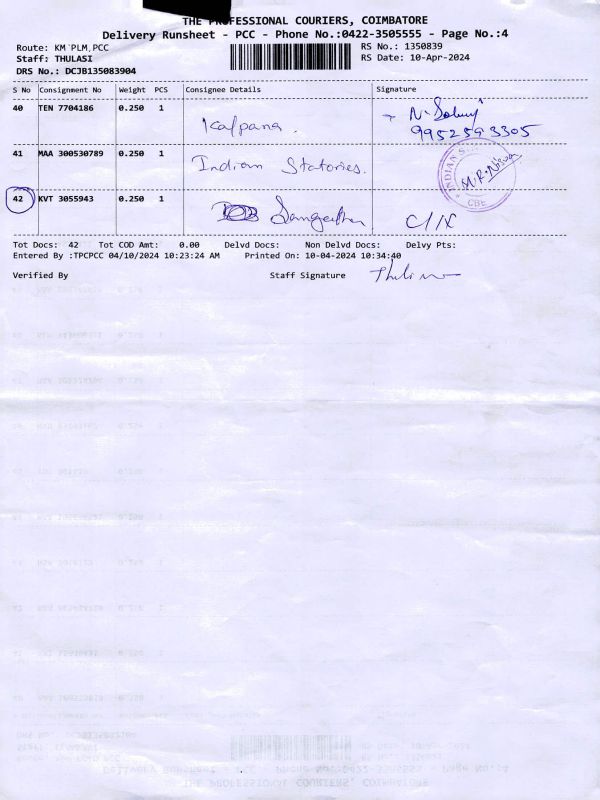 THE PROFESSIONAL COURIERS, COIMBATORE
Delivery Runsheet - PCC - Phone No.:0422-3505555 - Page No.:4
Route: KM PLM,PCC
RS No.: 1350839
Staff: THULASI
RS Date: 10-Apr-2024
DRS No.: DCJB135083904
S No Consignment No Weight PCS Consignee Details Signature
40 TEN 7704186 0.250 1 Kalpana.
9952593305
41 MAA 300530789 0.250 1 Indian Statories.
INDIAN'S
CBE
42 KVT 3055943 0.250 1 Sangeetha
Tot Docs: 42 Tot COD Amt: 0.00 Delvd Docs: Non Delvd Docs: Delvy Pts:
Entered By :TPCPCC 04/10/2024 10:23:24 AM Printed On: 10-04-2024 10:34:40
Verified By Staff Signature